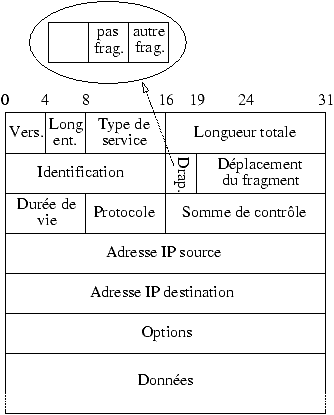 pas autre
frag. frag.
0 4 8 16 19 24 31
Vers. Long Type de Longueur totale
ent. service
Identification Drap. Déplacement
du fragment
Durée de Protocole Somme de contrôle
vie
Adresse IP source
Adresse IP destination
Options
Données